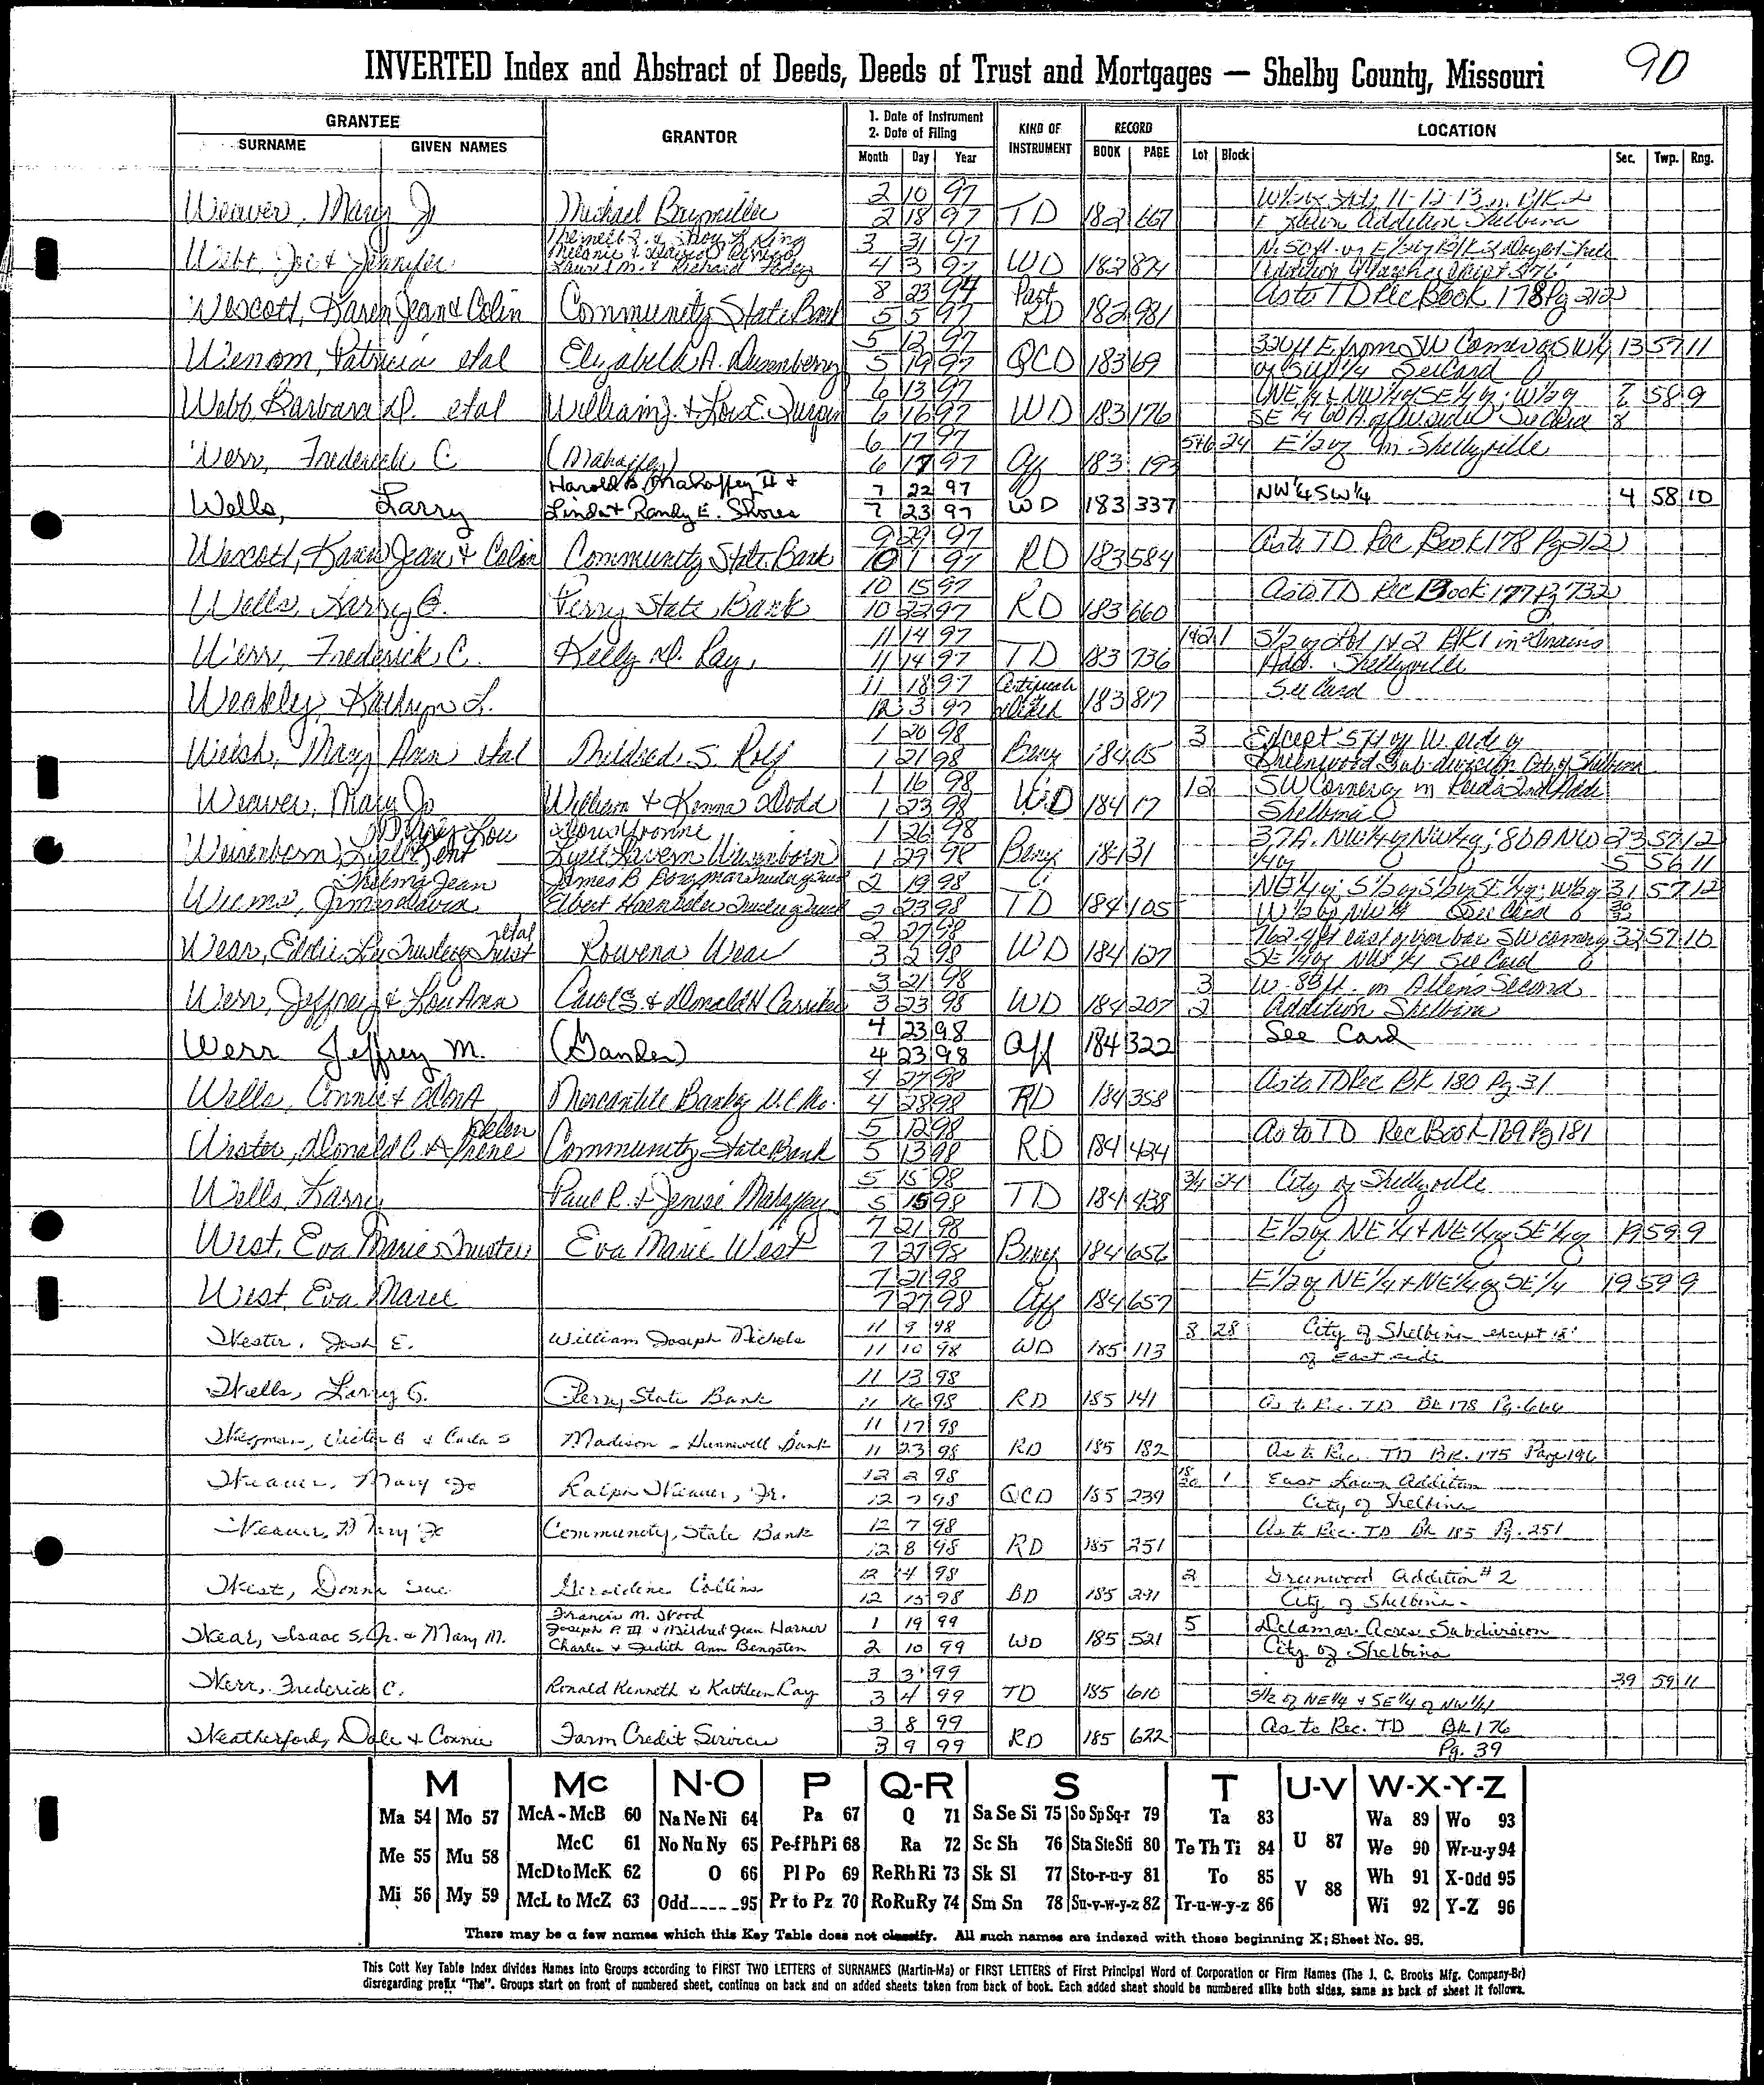 90
INVERTED Index and Abstract of Deeds, Deeds of Trust and Mortgages — Shelby County, Missouri
GRANTEE
SURNAME GIVEN NAMES
GRANTOR
1. Date of Instrument
2. Date of Filing
Month Day Year
KIND OF INSTRUMENT
RECORD
BOOK PAGE
LOCATION
Lot Block Sec. Twp. Rng.
Weaver, Mary Jo Michael Baymiller 2 10 97
2 18 97 TD 182 667
Webb, Joe & Jennifer 3 31 97
4 3 97 WD 182 874
Wescott, Karen Jean & Colin Community State Bank 8 23 94 Part As to TD Rec Book 178 Pg 212
5 5 97 RD 182 981
Patricia etal Elizabeth A. 5 12 97 330 ft E from SW Corner of SW 1/4 13 57 11
5 19 97 QCD 183 69 See Card
Webb, Barbara D. etal William J. & Lois E. Turpin 6 13 97 7 58 9
6 16 97 WD 183 176 8
Werr, Frederick C. (Mahaffey) 6 17 97 5+6 24 E 1/2 of in Shelbyville
6 17 97 Aff 183 193
Wells, Larry Harold B. Mahaffey II & 7 22 97 NW 1/4 SW 1/4 4 58 10
Linda & Randy E. Shores 7 23 97 WD 183 337
Wescott, Karen Jean & Colin Community State Bank 9 29 97 As to TD Rec Book 178 Pg 212
10 1 97 RD 183 584
Wells, Larry G. Perry State Bank 10 15 97 As to TD Rec Book 177 Pg 732
10 22 97 RD 183 660
Werr, Frederick C. Kelly D. Ray 11 14 97 1+2 1 S 1/2 of Lot 1+2 Blk 1 in
11 14 97 TD 183 736 Add. Shelbyville
Weakley, Kathryn L. 11 18 97 Certificate See Card
12 3 97 183 817
Welsh, Mary Ann etal Mildred S. Rolf 1 20 98 3 Except 5 ft of W side of
1 21 98 Beny 184 05 Greenwood Sub-division City of Shelbina
Weaver, Mary Jo William & Donna Dodd 1 16 98 12 SW Corner of in Reids 2nd Add
1 23 98 WD 184 17 Shelbina
Weisenborn, Lyell Kent Doris Yvonne 1 26 98 23 57 12
Lyell Lavern Weisenborn 1 29 98 Beny 184 31 5 56 11
Wiems, James David Thelma Jean 2 19 98 31 57 12
2 23 98 TD 184 105 See Card
Wear, Eddie Lee Trustee of Trust etal Rowena Wear 2 27 98 32 57 10
3 2 98 WD 184 127 SE 1/4 of NW 1/4 See Card
Werr, Jeffrey & LouAnn Carol S. & Donald H 3 21 98 3 W. 83 ft. in Allens Second
3 23 98 WD 184 207 2 Addition Shelbina
Werr Jeffrey M. (Gander) 4 23 98 See Card
4 23 98 Aff 184 322
Wells, Connie & Don A Mercantile Bank of N.E. Mo. 4 27 98 As to TD Rec Bk 180 Pg 31
4 28 98 RD 184 358
Wester, Donald C. & Helen Irene Community State Bank 5 12 98 As to TD Rec Book 169 Pg 181
5 13 98 RD 184 424
Wells, Larry Paul R. & Denise Mahaffey 5 15 98 3/4 24 City of Shelbyville
5 15 98 TD 184 438
West, Eva Marie Trustee Eva Marie West 7 21 98 E 1/2 of NE 1/4 + NE 1/4 of SE 1/4 of 19 59 9
7 27 98 Beny 184 656
West, Eva Marie 7 21 98 E 1/2 of NE 1/4 + NE 1/4 of SE 1/4 19 59 9
7 27 98 Aff 184 657
Wester, Josh E. William Joseph Nichols 11 9 98 8 28 City of Shelbina except
11 10 98 WD 185 113 of East side
Wells, Larry G. Perry State Bank 11 13 98
11 16 98 RD 185 141 As to Rec. TD Bk 178 Pg. 644
Victor G & Carla S Madison - Hunnewell Bank 11 17 98
11 23 98 RD 185 182 As to Rec. TD BK. 175 Page 196
Weaver, Mary Jo Ralph Weaver, Jr. 12 2 98 1 East Lawn Addition
12 7 98 QCD 185 239 City of Shelbina
Weaver, Mary Jo Community State Bank 12 7 98 As to Rec. TD Bk 185 Pg. 251
12 8 98 RD 185 251
West, Donna Sue Geraldine Collins 12 14 98 2 Greenwood Addition #2
12 15 98 BD 185 291 City of Shelbina
Wear, Isaac S. Jr. & Mary M. Francis M. Wood
Joseph P. III & Mildred Jean Harner 1 19 99 5 Delamar Acres Subdivision
Charles & Judith Ann Bengsten 2 10 99 WD 185 521 City of Shelbina
Werr, Frederick C. Ronald Kenneth & Kathleen Ray 3 3 99 39 59 11
3 4 99 TD 185 610 S 1/2 of NE 1/4 + SE 1/4 of NW 1/4
Weatherford, Dale & Connie Farm Credit Services 3 8 99 As to Rec. TD Bk 176
3 9 99 RD 185 622 Pg. 39
M Mc N-O P Q-R S T U-V W-X-Y-Z
Ma 54 Mo 57 McA-McB 60 Na Ne Ni 64 Pa 67 Q 71 Sa Se Si 75 So Sp Sq-r 79 Ta 83 Wa 89 Wo 93
Me 55 Mu 58 McC 61 No Nu Ny 65 Pe-f Ph Pi 68 Ra 72 Sc Sh 76 Sta Ste Sti 80 Te Th Ti 84 U 87 We 90 Wr-u-y 94
McD to McK 62 O 66 Pl Po 69 Re Rh Ri 73 Sk Sl 77 Sto-r-u-y 81 To 85 V 88 Wh 91 X-Odd 95
Mi 56 My 59 McL to McZ 63 Odd_____95 Pr to Pz 70 Ro Ru Ry 74 Sm Sn 78 Su-v-w-y-z 82 Tr-u-w-y-z 86 Wi 92 Y-Z 96
There may be a few names which this Key Table does not classify. All such names are indexed with those beginning X; Sheet No. 95.
This Cott Key Table Index divides Names into Groups according to FIRST TWO LETTERS of SURNAMES (Martin-Ma) or FIRST LETTERS of First Principal Word of Corporation or Firm Names (The J. C. Brooks Mfg. Company-Br)
disregarding prefix "The". Groups start on front of numbered sheet, continue on back and on added sheets taken from back of book. Each added sheet should be numbered alike both sides, same as back of sheet it follows.